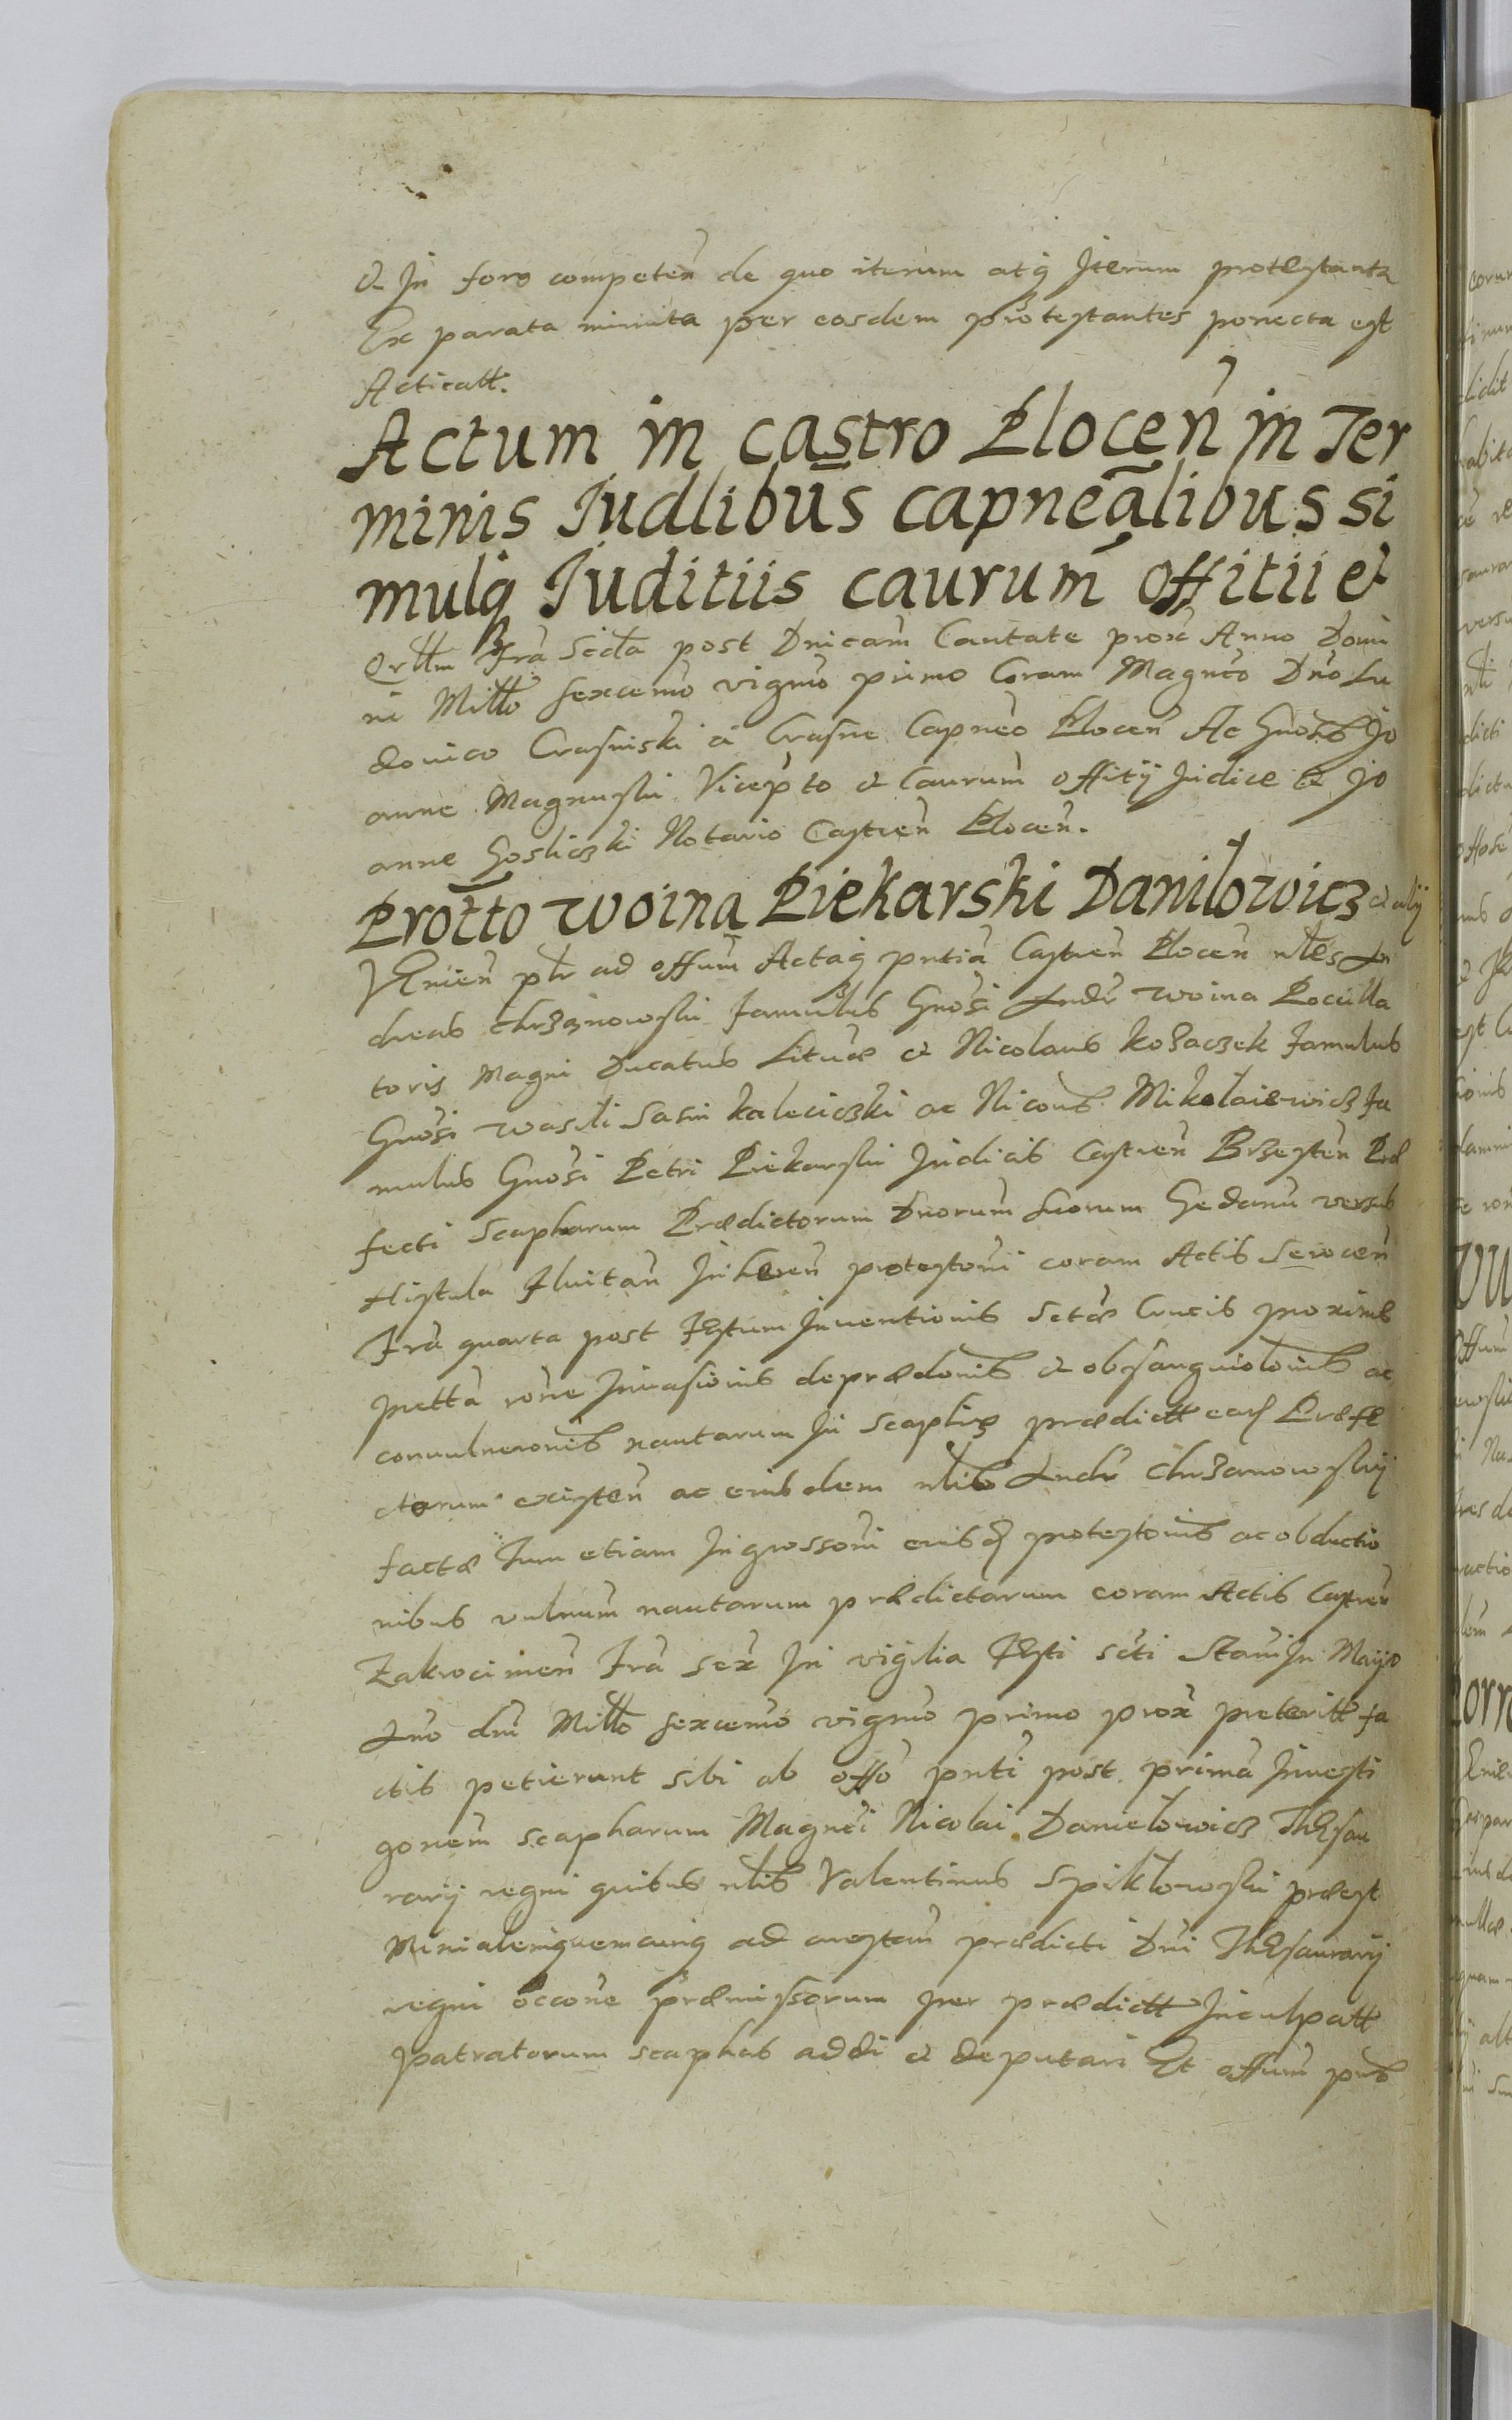 & In foro competen̄ de quo iterum atq Iterum protestanta
Ex parata minuta per eosdem protestantes porrecta est
Acticatt.
Actum in castro Plocen̄ in Ter
minis Iudlibus capnealibus si
mulq Iuditiis caurum̄ offitii et
Qrlłm Fra Scda post Dnicam̄ Cantate prox Anno Domi
ni Millo sexcemo vigmo primo Coram Magnco Dno Lu
dovico Crasinski a Crasne Capneo Plocen̄ Ac Gnosis Jo
anne Magnuski Vicepto & Caurum̄ offitij Iudice & Jo
anne Gosliczki Notario Castren̄ Plocen̄.
Protto Woina Piekarski Danilowicz & alij
VEnien̄ płr ad offum̄ Actaq pntia Castren̄ Plocen̄ nłes An
dreas Chrzanowski famulus Gnosi Andr Woina Pocilla
toris Magni Ducatus Lituæ & Nicolaus Kozaczek famulus
Gnosi Wasili Sasin Kaleciczki ac Nicous Mikołaiewicz fa
mulus Gnosi Petri Piekarski Iudicis Castren̄ Brzesten̄ Præ
fecti Scapharum Prædictorum Dnorum suorum Gedanu versus
Histula Fluitan̄ Inheren̄ protestoni coram Actis Serocen̄
Fra quarta post Festum Inventionis Sctæ Crucis proxime
prettā rōne Invasionis deprædonis & obsanguiolonis ac
convulneronis nautarum In scaphis prædictt earq Præfe
ctorum existen̄ ac eiusdem nłis Andr Chrzanowskij
factæ Tum etiam Ingrossoni eiusq protestonis ac obductio
nibus vulnum̄ nautarum prædictarum coram Actis Castren̄
Zakrocimen̄ Fra sex In vigilia Festi scti Stani In Maijo
Ano dni Millo sexcemo vigmo primo prox preteritt fa
ctis petierunt sibi ab offo pnti post prima Investi
gonem̄ scapharum Magnci Nicolai Danielowicz Thesau
rarij regni quibus nłis Valentinus Spiklowski præest
Minialemquemcunq ad arestan̄ prædicti Dni Thesaurarij
regni occone præmissorum per prædictt Inculpatt
patratorum scaphas addi & deputari Et offum̄ pns